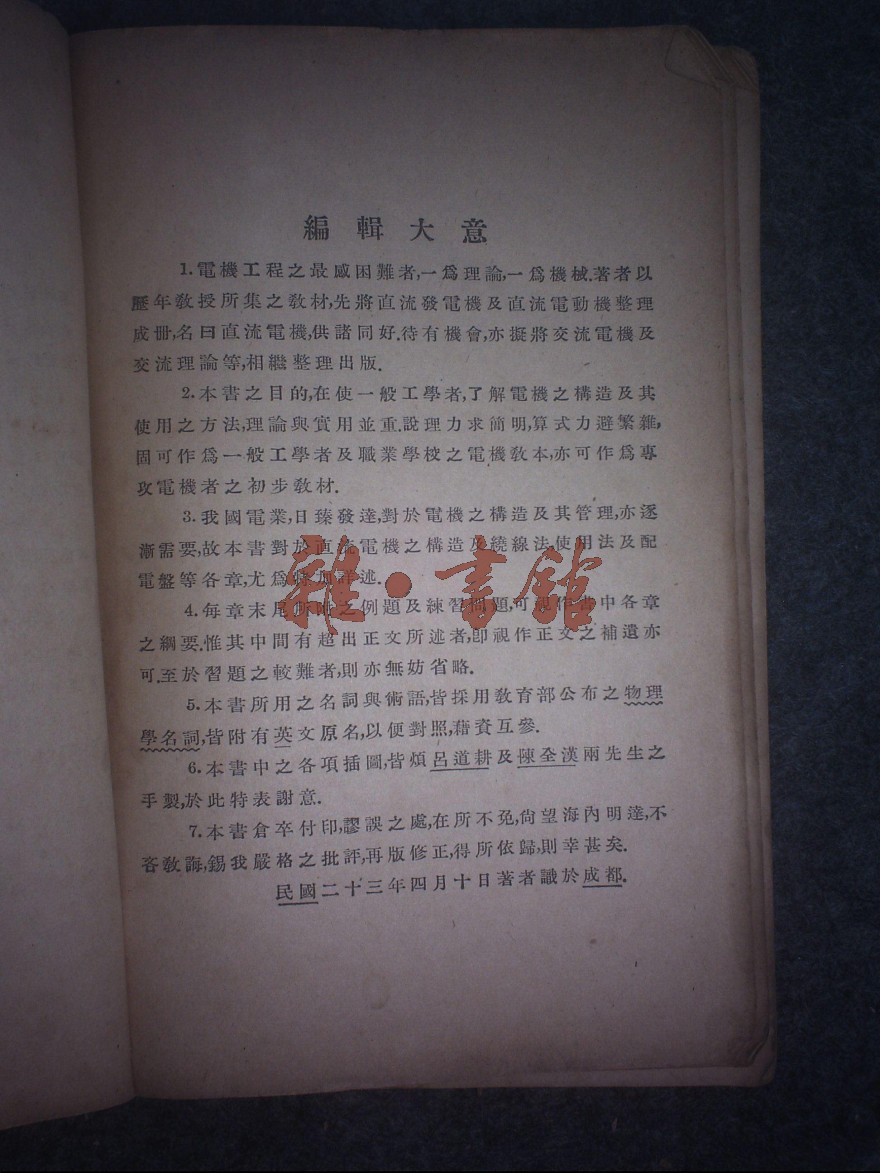 編輯大意
1.電機工程之最感困難者,一爲理論,一爲機械.著者以
歷年敎授所集之敎材,先將直流發電機及直流電動機整理
成册,名曰直流電機,供諸同好.待有機會,亦擬將交流電機及
交流理論等,相繼整理出版.
2.本書之目的,在使一般工學者,了解電機之構造及其
使用之方法,理論與實用並重.說理力求簡明,算式力避繁雜,
固可作爲一般工學者及職業學校之電機敎本,亦可作爲專
攻電機者之初步敎材.
3.我國電業,日臻發達,對於電機之構造及其管理,亦逐
漸需要,故本書對於直流電機之構造及繞線法,使用法及配
電盤等各章,尤爲詳述.
4.每章末尾所附之例題及練習問題,可視作書中各章
之綱要.惟其中間有超出正文所述者,卽視作正文之補遺亦
可.至於習題之較難者,則亦無妨省略.
5.本書所用之名詞與術語,皆採用敎育部公布之物理
學名詞,皆附有英文原名,以便對照,藉資互參.
6.本書中之各項插圖,皆煩呂道耕及陳全漢兩先生之
手製,於此特表謝意.
7.本書倉卒付印,謬誤之處,在所不免,尙望海內明達,不
吝敎誨,錫我嚴格之批評,再版修正,得所依歸,則幸甚矣.
民國二十三年四月十日著者識於成都.
雜·書館